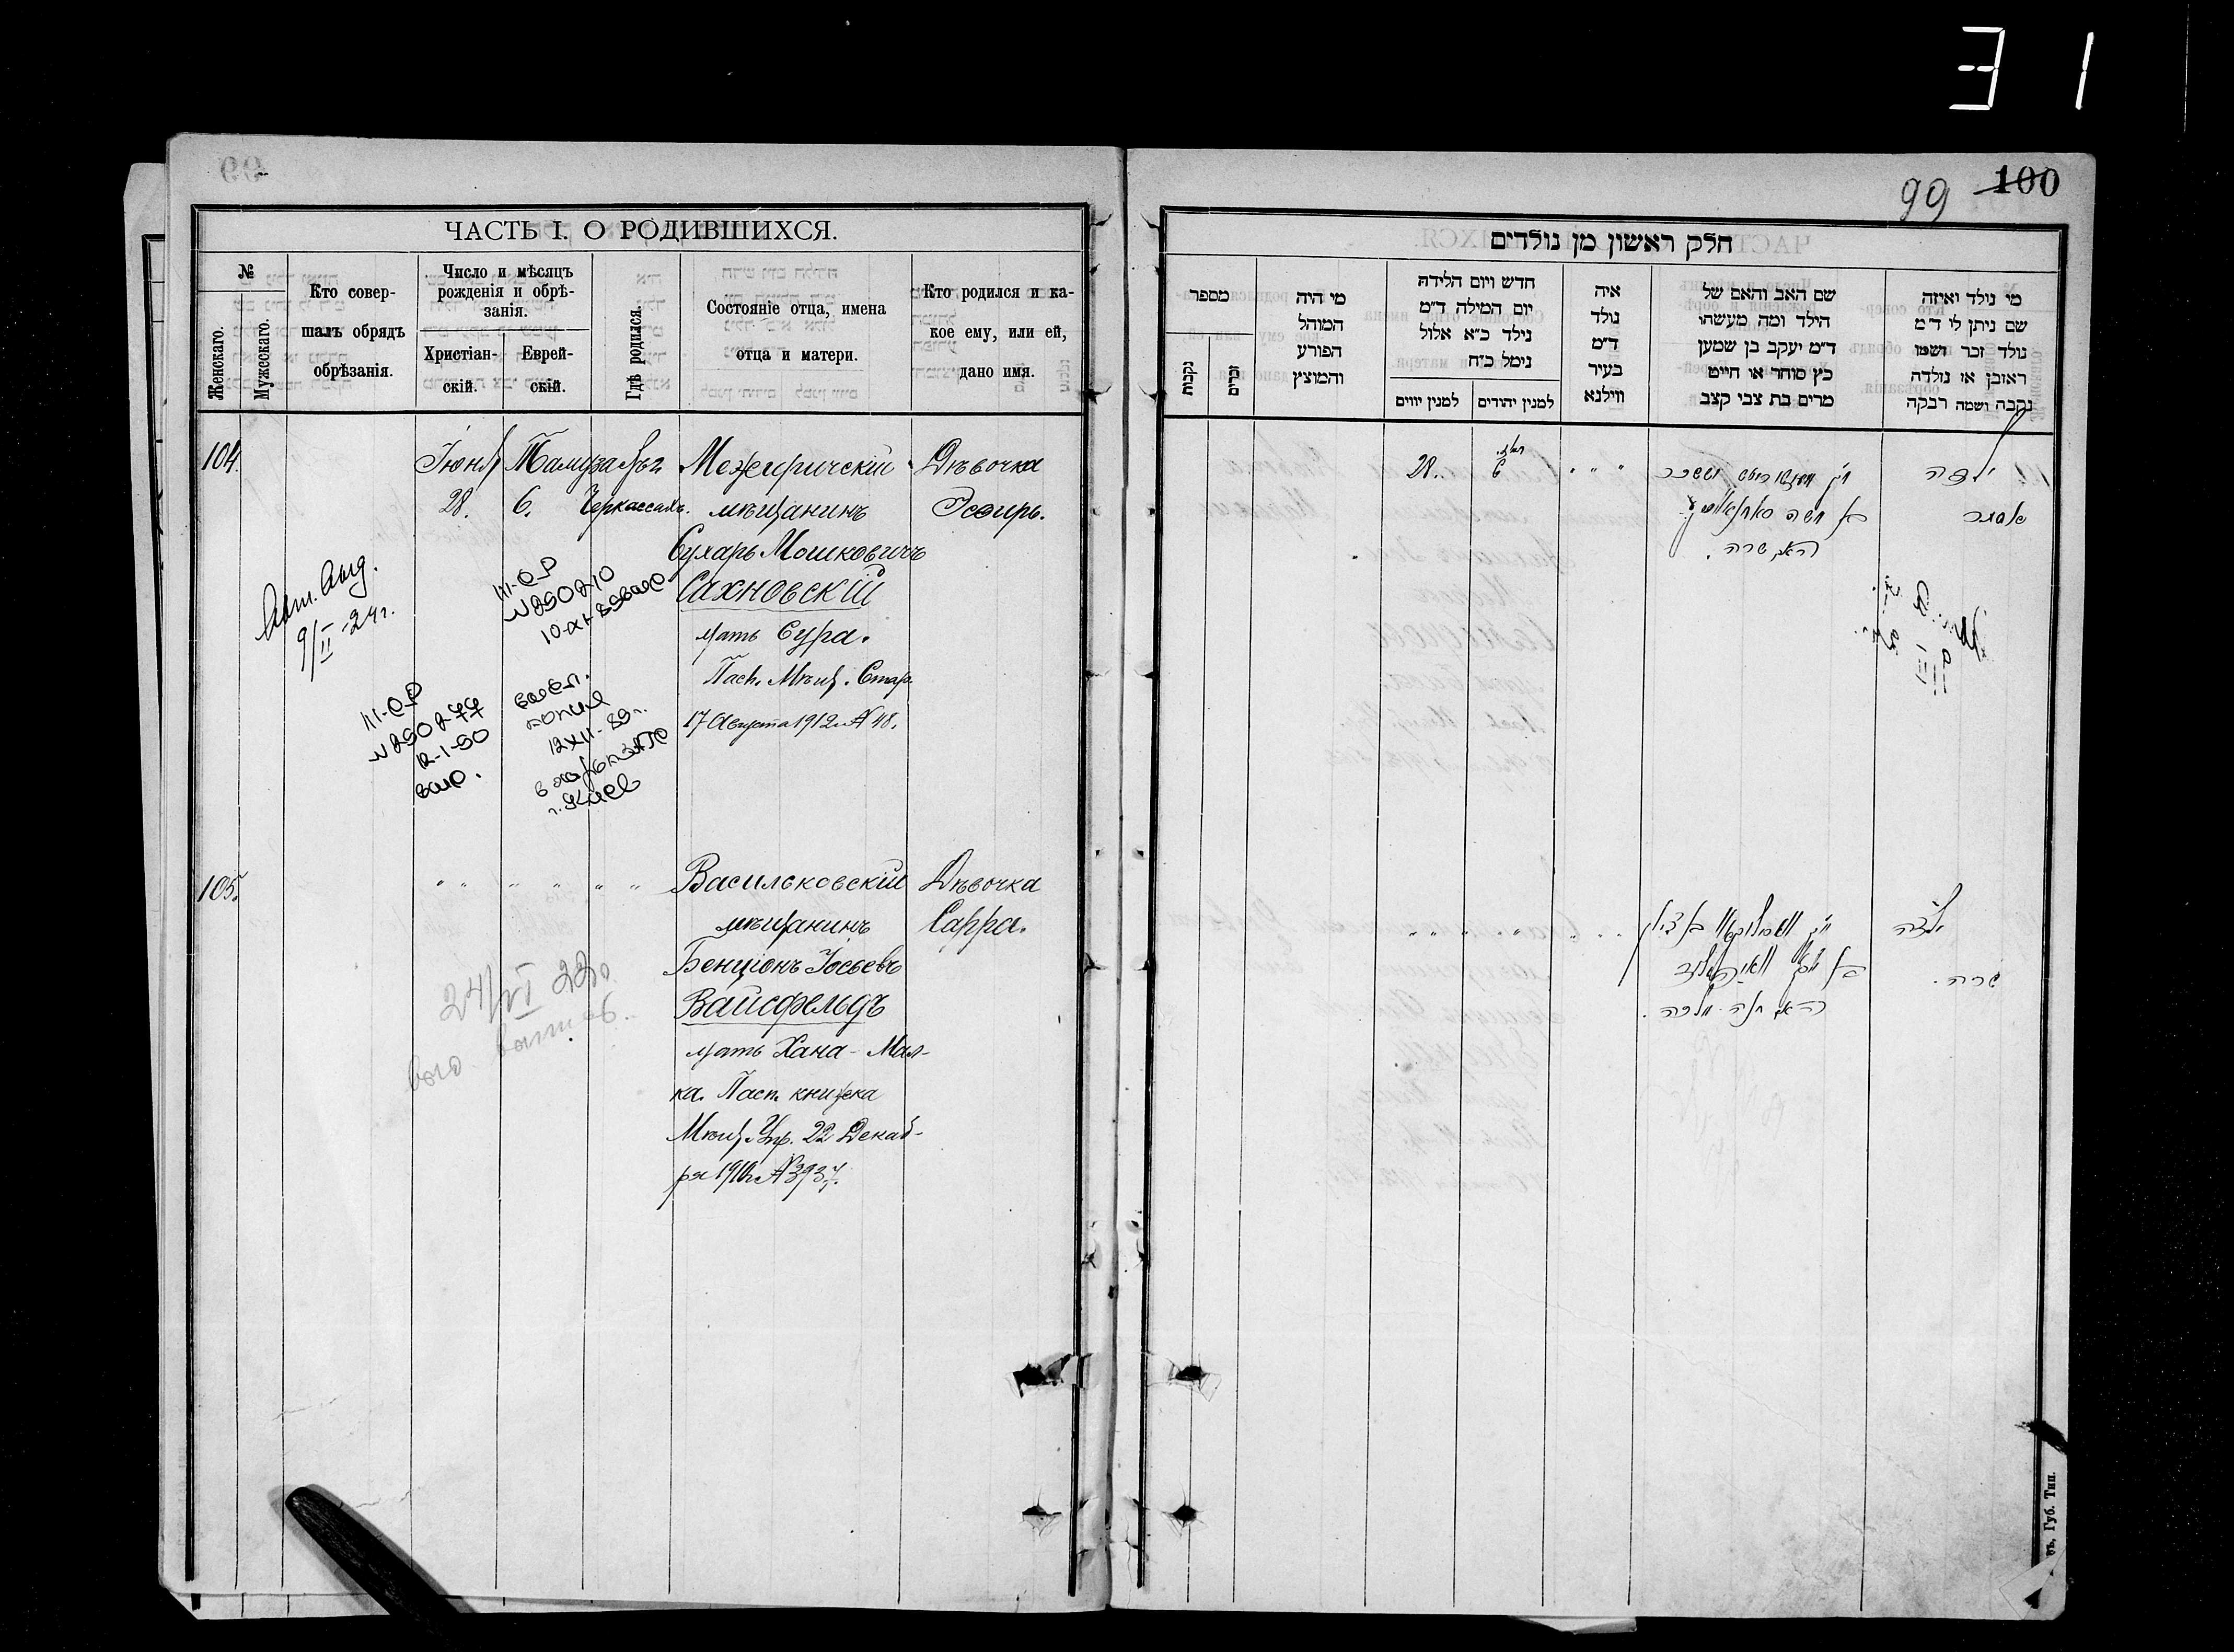 31
99
99 100
ЧАСТЬ I. О РОДИВШИХСЯ.
№
Женскаго.
Мужескаго.
Кто совер-
шалъ обрядъ
обрѣзанія.
Число и мѣсяцъ
рожденія и обрѣ-
занія.
Христіан-
скій.
Еврей-
скій.
Гдѣ родился.
Состояніе отца, имена
отца и матери.
Кто родился и ка-
кое ему, или ей,
дано имя.
104. Іюнь Тамуза Въ г. Межиричскій Дѣвочка
28. 6. Черкассахъ. мѣщанинъ Эсѳирь.
Сухарь Мошковичъ
Сахновскій
мать Сура.
Пасп. Мѣщ. Стар.
17 Августа 1912 г. № 48.
9/II-24 г.
III-СР
№ 890210
III-СР
№ 890277
12-1-90
копия
12 XII-89 г.
105. " " " " " " Васильковскій Дѣвочка
мѣщанинъ Сарра.
Бенціонъ Іосьевъ
Вайсфельдъ
мать Хана-Мал-
ка. Пасп. книжка
Мѣщ. Упр. 22 Декаб-
ря 1910 г. № 3937.
24/VI
חלק ראשון מן נולדים
מי נולד ואיזה
שם ניתן לו ד״מ
נולד זכר ושמו
ראובן או נולדה
נקבה ושמה רבקה
שם האב והאם של
הילד ומה מעשהו
ד״מ יעקב בן שמען
כץ סוחר או חייט
מרים בת צבי קצב
איה
נולד
ד״מ
בעיר
ווילנא
חדש ויום הלידה
יום המילה ד״מ
נילד כ״א אלול
נימל כ״ח
למנין יהודים
למנין יווים
מי היה
המוהל
הפורע
והמוצץ
מספר
זכרים
נקבות
ילדה
28.
אסתר
האם שרה.
ילדה
שרה.
האם חנה מלכה.
Губ. Тип.